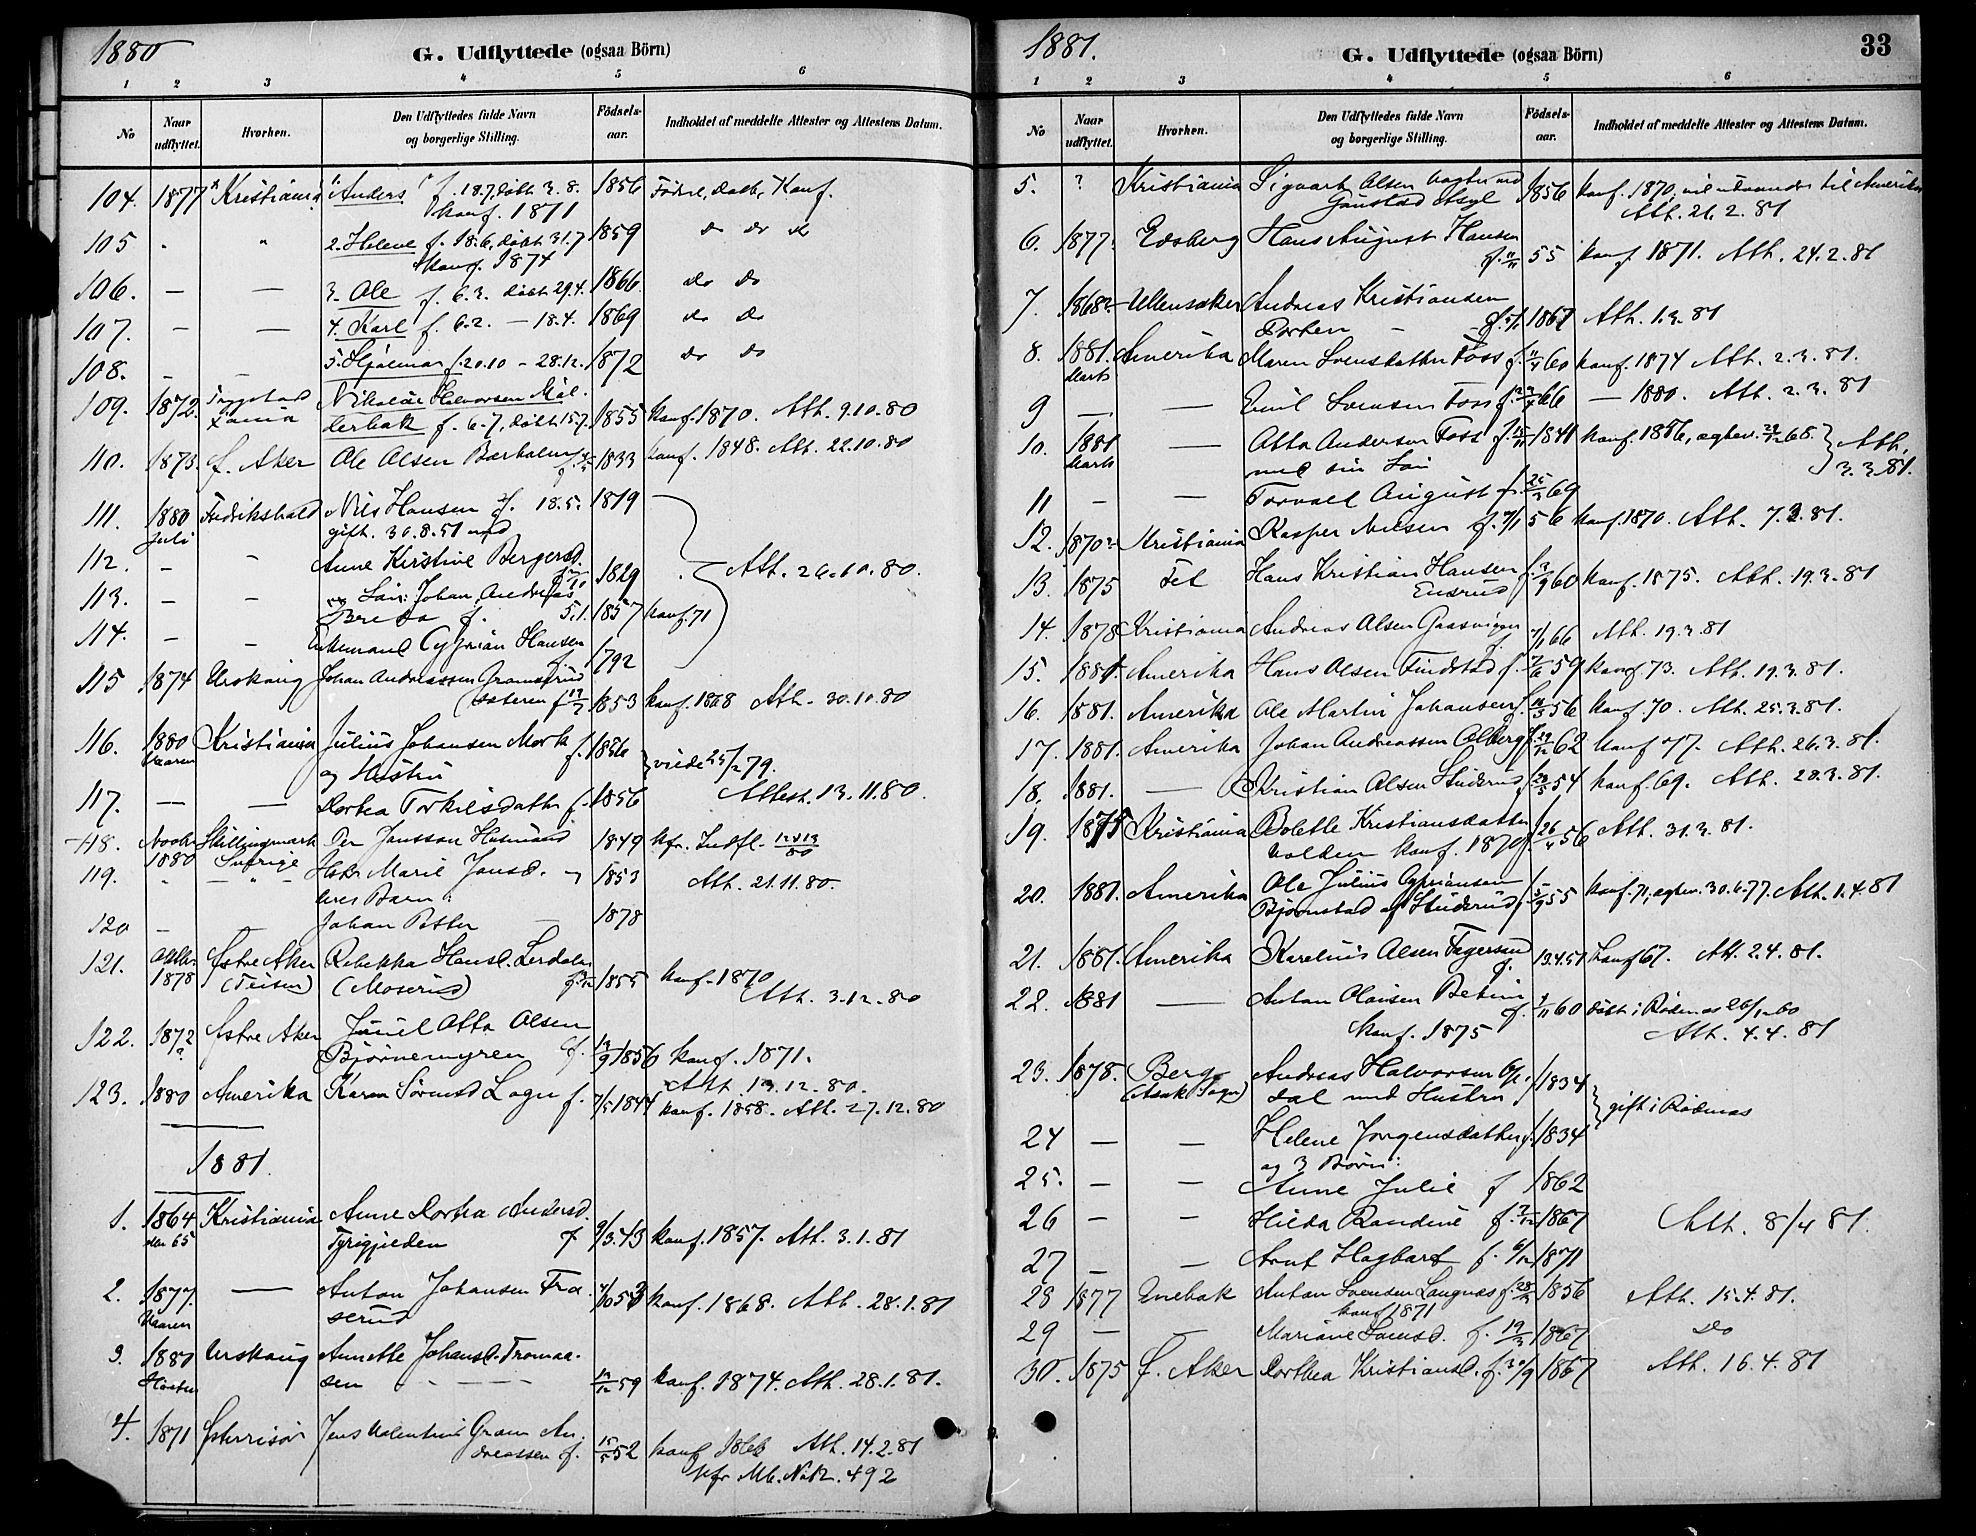 1880
G. Udflyttede (ogsaa Börn)
1 2 3 4 5 6
No Naar udflyttet. Hvorhen. Den Udflyttedes fulde Navn og borgerlige Stilling. Födsels-aar. Indholdet af meddelte Attester og Attestens Datum.
104. 1877 Kristiania 1. Anders f. 18.7, døbt 3.8. 1856 Födsel, daab, Konf.
konf. 1871
105 " 2. Helene f. 18.6, døbt 31.7 1859 do do do
konf. 1874
106. — — 3. Ole f. 6.3. døbt 29.4. 1866 do do
107. — — 4. Karl f. 6.2. — 18.4. 1869 do do
108. — — 5. Hjalmar f. 20.10 — 28.12. 1872 do do
109. 1872. Nikolai Halvorsen Møl-
derbak f. 6.7, døbt 15.7. 1855 Konf. 1870. Att. 9.10.80
110. 1873. Ø. Aker Ole Olsen 1833 konf. 1848. Att. 22.10.80
111. 1880 Fredrikshald Nils Hansen f. 18.5. 1819
Juli gift. 30.8.51 med
112. — Anne Kirstine Bergersd. 1829 Att. 26.10.80.
113. — — og Søn: Johan Andreas
Breda f. 5.1. 1857 konf. 71
114. — Enkemand Cyprian Hansen
f. 1792
115 1874 Urskoug Johan Andreassen
f. 19/7 1853 konf. 1868 Att. 30.10.80
116. 1880 Kristiania Julius Johansen Mork f. 1856
Vaaren og Hustru viede 25/2 79.
117. — — Dorthea Torkilsdatter f. 1856 Attest. 13.11.80.
118. Novbr. Skillingmark Per Jansson Husmand 1849 kfr. Indfl.
1880 Sverige
119. " Hstr. Marie Jansd. 1853 Att. 21.11.80.
deres Barn:
120 — Johan Petter — 1878
121. Oktbr. Østre Aker Rebekka Hansd. Lerdalen
1878 (Teisen) (Moserud) 1855 konf. 1870
Att. 3.12.80
122. 1872 Østre Aker Otto Olsen
? Bjørnemyren f. 1856 konf. 1871.
Att. 13.12.80.
123. 1880 Amerika Karen f. 7/5 1844 konf. 1858. Att. 27.12.80
1881.
1. 1864 Kristiania Anne Dorthea Andersd.
65 f. 9/3 43 konf. 1857. Att. 3.1.81
2. 1877. — Anton Johansen Fra-
Vaaren serud 53 konf. 1868. Att. 28.1.81
3. 1880 Urskoug Annette Johansd. Tromaa-
Høsten sen 59 konf. 1874. Att. 28.1.81.
4. 1871 Østerrisør Jens Valentin Gram An-
dreassen f. 15/5 52 konf. Att. 14.2.81
kfr Mb. No 2. 492
1881.
G. Udflyttede (ogsaa Börn)
33
1 2 3 4 5 6
No Naar udflyttet. Hvorhen. Den Udflyttedes fulde Navn og borgerlige Stilling. Födsels-aar. Indholdet af meddelte Attester og Attestens Datum.
5. ? Kristiania Sigvart Olsen
Gaustad Asyl 1856 konf. 1870, vil udvandre til Amerika
Att. 21.2.81
6. 1877. Edsberg Hans August Hansen
f. 11/11 55 konf. 1871. Att. 24.2.81
7. 1868? Ullensaker Andreas Kristiansen
— f. 1867 Att. 1.3.81
8. 1881. Amerika Maren Svensdatter Foss f. 60 konf. 1874 Att. 2.3.81.
Marts
9 — — Emil Svensen Foss f. 66 — 1880. Att. 2.3.81
10. 1881 — Otto Andersen Foss f. 1841 konf. 1856, ægtev. 65. Att.
Marts med sin Søn 3.3.81.
11 — — Torvald August f. 25/3 69
12. 1870? Kristiania Kasper Nilsen f. 56 konf. 1870. Att. 7.3.81.
13. 1875 Fet Hans Kristian Hansen
f. 3/9 60 konf. 1875. Att. 19.3.81
14. 1878 Kristiania Andreas Olsen
f. 7/11 66 Att. 19.3.81
15. 1881. Amerika Hans Olsen Findstad f. 59 konf 73. Att. 19.3.81.
16. 1881. Amerika Ole Martin Johansen f. 56 konf. 70. Att. 25.3.81.
17. 1881. Amerika Johan Andreassen f. 62 konf 77. Att. 26.3.81.
18. 1881. — Kristian Olsen Studerud f. 54 konf. 69. Att. 28.3.81.
19. 1875 Kristiania Bolette Kristiansdatter
konf. 1870 f. 26/4 56 Att. 31.3.81.
20. 1881. Amerika Ole Julius Cypriansen
Bjørnstad af Studerud f. 5/9 55 konf. 71, ægtev. 30.6.77. Att. 1.4.81
21. 1881. Amerika Karelius Olsen
f. 13.4.51 konf 67. Att. 2.4.81.
22. 1881 — Anton Olaisen
f. 60 døbt i Rødenæs 26/1.60
konf. 1875 Att. 4.4.81
23. 1878. Berg Andreas Halvorsen
(Asak Sogn) dal med Hustru 1834 gift i Rødenæs
24 — — Helene Jørgensdatter f. 1834
og 3 Børn:
25. — — Anne Julie f 1862
26 — — Hilda Randine f. 1867 Att. 8/4 81.
27 — — Arnt Hagbart f. 6/12 1871
28 1877 Enebak Anton Svensen Langnæs f. 1856 Att. 15.4.81.
konf 1871
29 — — Mariane f. 19/3 1867 do
30. 1875 Ø. Aker Dorthea Kristiansd. f. 30/9 1867 Att. 16.4.81